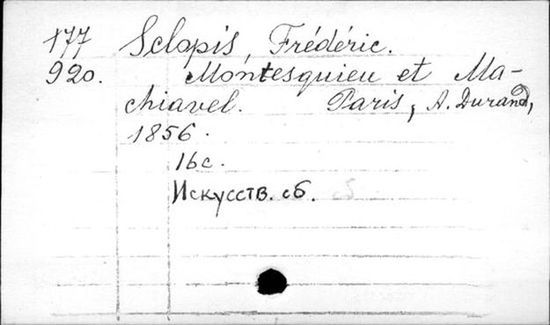 177 Sclopis, Frédéric.
920. Montesquieu et Ma-
chiavel. Paris, A. Durand,
1856.
16c.
Искусств. сб.